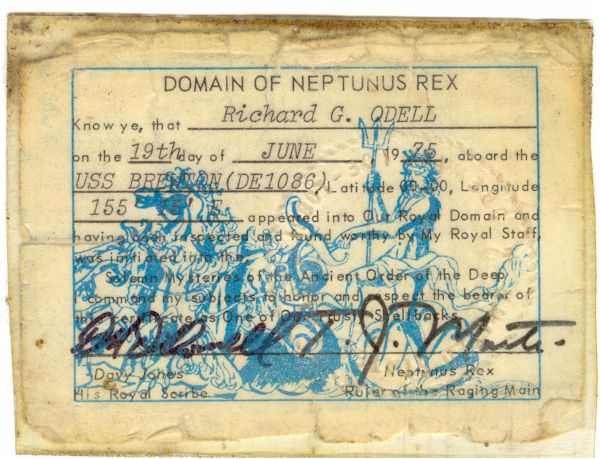 DOMAIN OF NEPTUNUS REX
Know ye, that Richard G. ODELL
on the 19th day of JUNE 19 75, aboard the
USS BREWTON(DE1086), Latitude 00-00, Longitude
155 15' E appeared into Our Royal Domain and
having been inspected and found worthy by My Royal Staff,
was initiated into the
Solemn Mysteries of the Ancient Order of the Deep
I command my subjects to honor and respect the bearer of
this certificate as One of Our Trusty Shellbacks
T. J.
Davy Jones Neptunus Rex
His Royal Scribe Ruler of the Raging Main